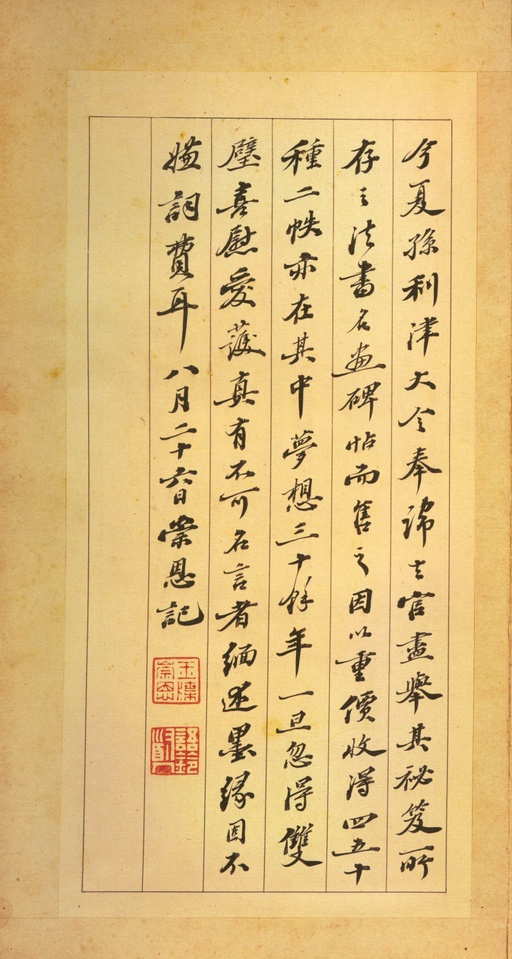 今夏孫利津大令奉諱去官盡舉其祕笈所
存之法書名畫碑帖而售之因以重價收得四五十
種二帙亦在其中夢想三十餘年一旦忽得雙
璧喜慰愛護真有不可名言者緬述墨緣因不
嫌詞費耳八月二十六日崇恩記
玉牒崇恩